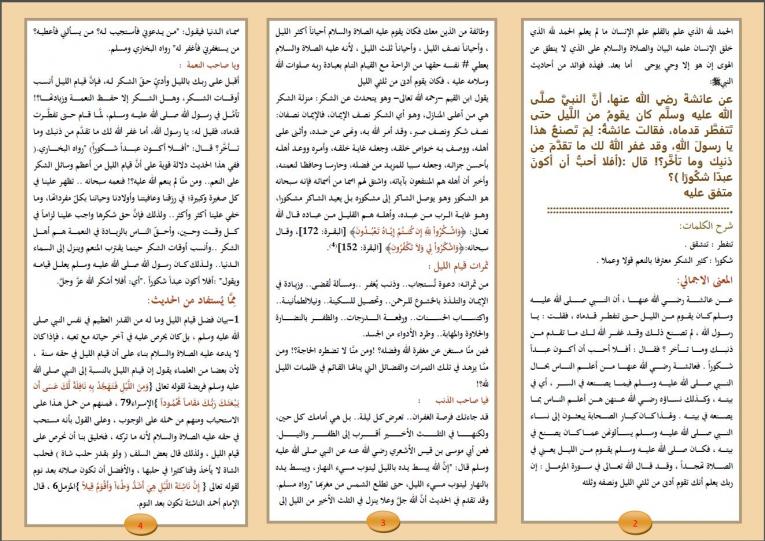 الحمد لله الذي علم بالقلم علم الإنسان ما لم يعلم الحمد لله الذي
خلق الإنسان علمه البيان والصلاة والسلام على الذي لا ينطق عن
الهوى إن هو إلا وحي يوحى أما بعد. فهذه فوائد من أحاديث
النبيﷺ:
عن عائشة رضي الله عنها، أنَّ النبيَّ صلَّى
الله عليه وسلَّم كان يقومُ من اللَّيل حتى
تَتَفطَّر قدماه، فقالت عائشةُ: لِمَ تَصنَعُ هذا
يا رسولَ اللهِ، وقد غفر اللهُ لك ما تقدَّم مِن
ذَنبِك وما تأخَّر؟! قال :(أفلا أحبُّ أن أكونَ
عبدًا شكُورًا )؟
متفق عليه
شرح الكلمات:
تتفطر : تتشقق .
شكورا : كثير الشكر معترفا بالنعم قولا وعملا .
المعنى الاجمالي:
عـن عائشـة رضـي الله عنهـا ، أن النبـي صلـى الله عليـه
وسلم كان يقوم من الليل حتى تتفطر قدماه ، فقلت : يا
رسول الله ، لم تصنع ذلك وقد غفر الله لك ما تقدم من
ذنبـك ومـا تـأخر ؟ فقـال : أفـلا أحـب أن أكـون عبـداً
شكوراً . فعائشة رضي الله عنها من أعلم الناس بحال
النبي صلى الله عليه وسلم فيما يصنعه في السر ، أي في
بيته ، وكذلك نساؤه رضي الله عنهن هن أعلم الناس بما
يصنعه في بيته . ولهذا كان كبار الصحابة يبعثون إلى نساء
النبي صلى الله عليه وسلم يسألونهن عما كان يصنع في
بيته ، فكان صلى الله عليه وسلم يقوم من الليل يعني في
الصلاة تهجداً ، وقد قال الله تعالى في سورة المزمل : إن
ربك يعلم أنك تقوم أدنى من ثلثي الليل ونصفه وثلثه
2
وطائفة من الذين معك فكان يقوم عليه الصلاة والسلام أحياناً أكثر الليل
، وأحياناً نصف الليل ، وأحياناً ثلث الليل ، لأنه عليه الصلاة والسلام
يعطي # نفسه حقها من الراحة مع القيام التام بعبادة ربه صلوات الله
وسلامه عليه . فكان يقوم أدنى من ثلثي الليل
يقول ابن القيم -رحمه الله تعالى- وهو يتحدث عن الشكر: منزلة الشكر
هي من أعلى المنازل، وهو أي الشكر نصف الإيمان، فالإيمان نصفان:
نصف شكر ونصف صبر، وقد أمر الله به، ونهى عن ضده، وأثنى على
أهله، ووصف به خواص خلقه، وجعله غاية خلقه، وأمره ووعد أهله
بأحسن جزائه، وجعله سببا للمزيد من فضله، وحارسا وحافظا لنعمته،
وأخبر أن أهله هم المنتفعون بآياته، واشتق لهم اسما من أسمائه فإنه سبحانه
هو الشكور وهو يوصل الشاكر إلى مشكوره بل يعيد الشاكر مشكورا،
وهو غاية الرب من عبده، وأهله هم القليل من عباده قال الله
تعالى: ﴿وَاشْكُرُوا لِلَّهِ إِن كُنتُمْ إِيَّاهُ تَعْبُدُونَ﴾ [البقرة: 172]، وقال
سبحانه:﴿وَاشْكُرُوا لِي وَلَا تَكْفُرُونِ﴾ [البقرة: 152](4).
ثمرات قيام الليل :
من ثمراته: دعوة تُستجاب.. وذنب يُغفر ..ومسألة تُقضى.. وزيادة في
الإيمان والتلذذ بالخشوع للرحمن.. وتحصيل للسكينة.. ونيل الطمأنينة..
واكتساب الحسنات.. ورفعة الدرجات.. والظفر بالنضارة
والحلاوة والمهابة.. وطرد الأدواء من الجسد.
فمن منَّا مستغن عن مغفرة الله وفضله؟! ومن منَّا لا تضطره الحاجة؟! ومن
منا يزهد في تلك الثمرات والفضائل التي ينالها القائم في ظلمات الليل
لله؟!
فيا صاحب الذنب :
قد جاءتك فرصة الغفران.. تعرض كل ليلة.. بل هي أمامك كل حين،
ولكنهـا في الثلـث الأخـير أقـرب إلى الظفـر والنيـل.
فعن أبي موسى بن قيس الأشعري رضي الله عنه عن النبي صلى الله عليه
وسلم قال: "إنَّ الله يبسط يده بالليل ليتوب مسيء النهار، ويبسط يده
بالنهار ليتوب مسيء الليل، حتى تطلع الشمس من مغربها" رواه مسلم.
وقد تقدم في الحديث أنَّ الله جلَّ وعلا ينزل في الثلث الأخير من الليل إلى
3
سماء الدنيا فيقول: "من يدعوني فأستجيب له؟ من يسألني فأعطيه؟
من يستغفرني فأغفر له" رواه البخاري ومسلم.
ويا صاحب النعمة :
أقبل على ربك بالليل وأدي حق الشكر له، فإنَّ قيام الليل أنسب
أوقـات الشكر، وهـل الشـكر إلا حفـظ النعمـة وزيادتهـا؟!
تأمَّل في رسول الله صلى الله عليه وسلم، لمَّا قام حتى تفطَّرت
قدماه، فقيل له: يا رسول الله، أما غفر الله لك ما تقدَّم من ذنبك وما
تأخَّر؟ قال: "أفلا أكون عبداً شكوراً" رواه البخاري.(
ففي هذا الحديث دلالة قوية على أنَّ قيام الليل من أعظم وسائل الشكر
على النعم.. ومن منَّا لم ينعم الله عليه؟! فنعمه سبحانه .. تظهر علينا في
كل صغيرة وكبيرة؛ في رزقنا وعافيتنا وأولادنا وحياتنا بكلِّ مفرداتها، وما
خفي علينا أكثر وأكثر.. ولذلك فإنَّ حق شكرها واجب علينا لزاماً في
كل وقت وحين، وأحقّ الناس بالزيادة في النعمة هم أهل
الشكر ..وأنسب أوقات الشكر حينما يقترب المنعم وينزل إلى السماء
الدنيا.. ولذلك كان رسول الله صلى الله عليه وسلم يعلل قيامه
ويقول "أفلا أكون عبداً شكوراً ." أي: أفلا أشكر الله عزَّ وجلَّ.
مِمَّا يُستفاد من الحديث:
1-بيان فضل قيام الليل وما له من القدر العظيم في نفس النبي صلى
الله عليه وسلم ، بل كان يحرص عليه في آخر حياته مع تعبه ، فإذا كان
لا يدعه عليه الصلاة والسلام بناء على أن قيام الليل في حقه سنة ،
لأن بعضا من العلماء يقول إن قيام الليل بالنسبة إلى النبي صلى الله
عليه وسلم فريضة لقوله تعالى {وَمِنَ اللَّيْلِ فَتَهَجَّدْ بِهِ نَافِلَةً لَّكَ عَسَى أَن
يَبْعَثَكَ رَبُّكَ مَقَاماً مَّحْمُوداً }الإسراء79 ، فمنهم من حمل هذا على
الاستحباب ومنهم من حمله على الوجوب ، وعلى القول بأنه مستحب
في حقه عليه الصلاة والسلام لأنه ما تركه ، فخليق بنا أن نحرص على
قيام الليل ، ولذلك قال بعض السلف ( ولو بقدر حلب شاة ) فحلب
الشاة لا يأخذ وقتا كثيرا في حلبها ، والأفضل أن تكون صلاته بعد نوم
لقوله تعالى { إِنَّ نَاشِئَةَ اللَّيْلِ هِيَ أَشَدُّ وَطْءاً وَأَقْوَمُ قِيلاً }المزمل6 ، قال
الإمام أحمد الناشئة تكون بعد النوم.
4